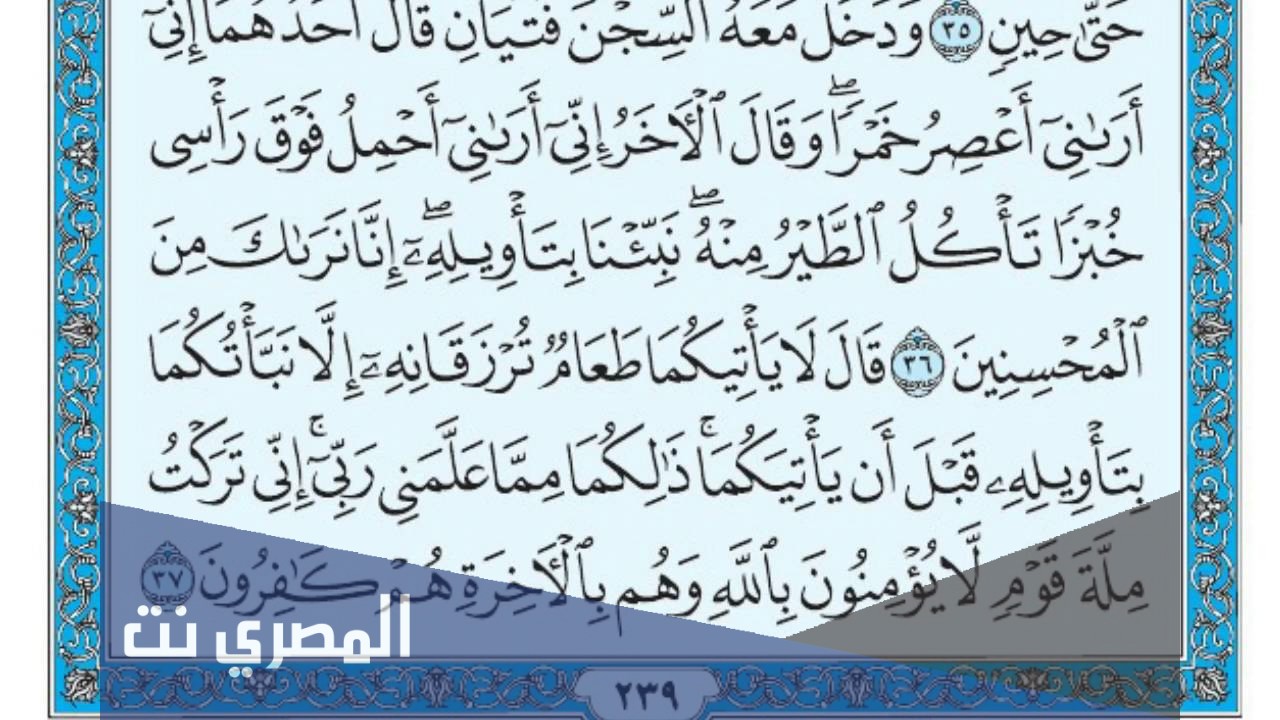 حَتَّىٰ حِينٍ ٣٥ وَدَخَلَ مَعَهُ ٱلسِّجْنَ فَتَيَانِ قَالَ أَحَدُهُمَآ إِنِّىٓ
أَرَىٰنِىٓ أَعْصِرُ خَمْرًا ۖ وَقَالَ ٱلْأَخَرُ إِنِّىٓ أَرَىٰنِىٓ أَحْمِلُ فَوْقَ رَأْسِى
خُبْزًا تَأْكُلُ ٱلطَّيْرُ مِنْهُ ۖ نَبِّئْنَا بِتَأْوِيلِهِۦٓ ۖ إِنَّا نَرَىٰكَ مِنَ
ٱلْمُحْسِنِينَ ٣٦ قَالَ لَا يَأْتِيكُمَا طَعَامٌ تُرْزَقَانِهِۦٓ إِلَّا نَبَّأْتُكُمَا
بِتَأْوِيلِهِۦ قَبْلَ أَن يَأْتِيَكُمَا ۚ ذَٰلِكُمَا مِمَّا عَلَّمَنِى رَبِّىٓ ۚ إِنِّى تَرَكْتُ
مِلَّةَ قَوْمٍ لَّا يُؤْمِنُونَ بِٱللَّهِ وَهُم بِٱلْأَخِرَةِ هُمْ كَٰفِرُونَ ٣٧
المصري نت
٢٣٩